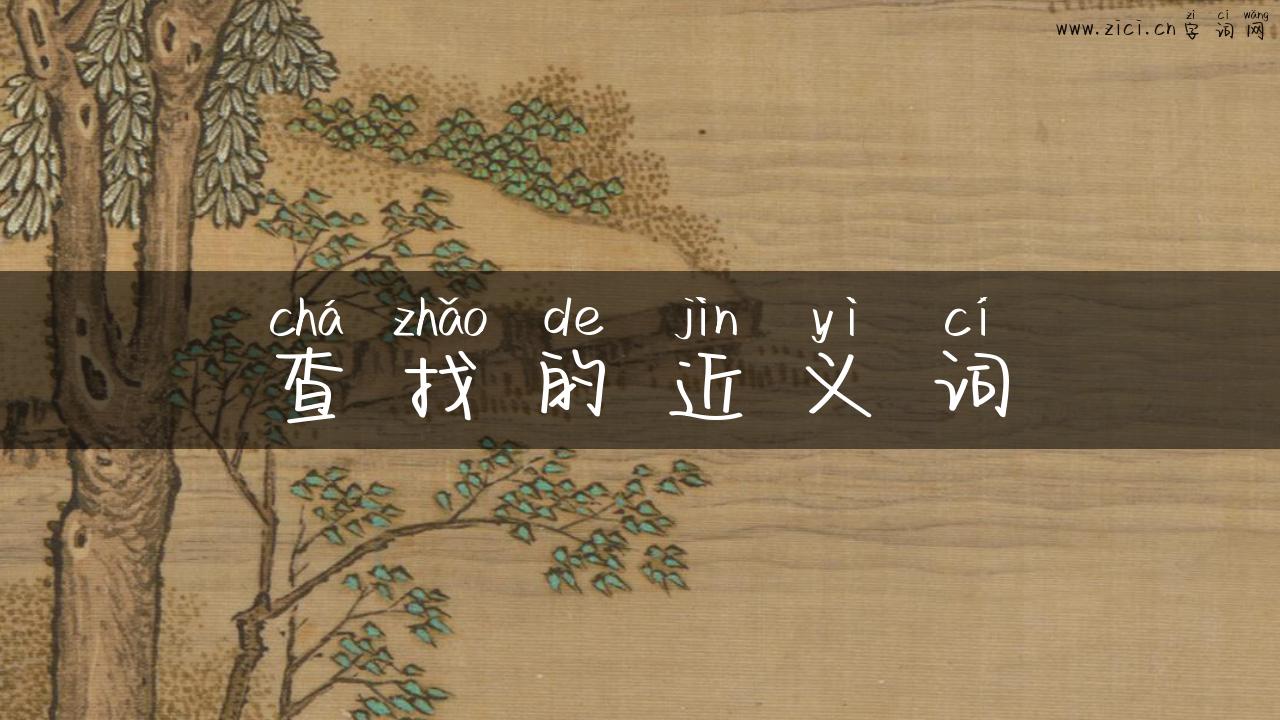 zì cí wǎng
www.zici.cn 字 词 网
chá zhǎo de jìn yì cí
查 找 的 近 义 词